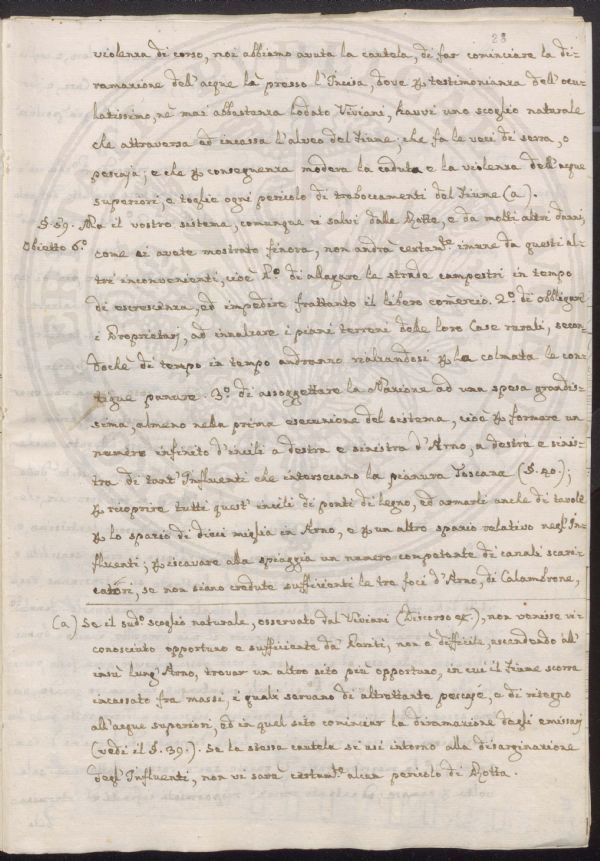 28
violenza di corso, noi abbiamo avuta la cautela, di far cominciare la di-
ramazione dell'acque là presso l'Incisa, dove p testimonianza dell'ocu-
latissimo, nè mai abbastanza lodato Viviani, havvi uno scoglio naturale
che attraversa ed incassa l'alveo del Fiume, che fa le veci di serra, o
pescaja; e che p conseguenza modera la caduta e la violenza dell'acque
superiori, e toglie ogni pericolo di traboccamenti del Fiume (a).
§. 59. Ma il vostro sistema, comunque ci salvi dalle Rotte, e da molti altri danni,
Obietto 6.º come ci avete mostrato finora, non andrà certam.te imune da questi al-
tri inconvenienti, cioè P.º di allagare le strade campestri in tempo
di escrescenza, ed impedire frattanto il libero comercio. 2.º di obbligare
i Proprietarj, ad innalzare i piani terreni delle loro Case rurali, secon-
dochè di tempo in tempo andranno rialzandosi p la colmata le con-
tigue pianure. 3.º di assoggettare la Nazione ad una spesa grandis-
sima, almeno nella prima esecuzione del sistema, cioè p formare un
numero infinito d'incili a destra e sinistra d'Arno, a destra e sinis-
tra di tant'Influenti che intersecano la pianura Toscana (§. 20.);
p ricoprire tutti quest'incili di ponti di legno, ed armarli anche di tavole
p lo spazio di dieci miglia in Arno, e p un altro spazio relativo negl'In-
fluenti; p iscavare alla spiaggia un numero competente di canali scari-
catori, se non siano credute sufficienti le tre foci d'Arno, di Calambrone,
(a) Se il sud.º scoglio naturale, osservato dal Viviani (Discorso ec.), non venisse ri-
conosciuto opportuno e sufficiente da' Periti, non è difficile, ascendendo all'
insù lung'Arno, trovar un altro sito più opportuno, in cui il Fiume scorre
incassato fra massi, i quali servano di altrettante pescaje, e di ritegno
all'acque superiori, ed in quel sito cominciar la diramazione degli emissarj
(vedi il §. 39.). Se la stessa cautela si usi intorno alla disarginazione
degl'Influenti, non vi sarà certam.te alcun pericolo di Rotta.